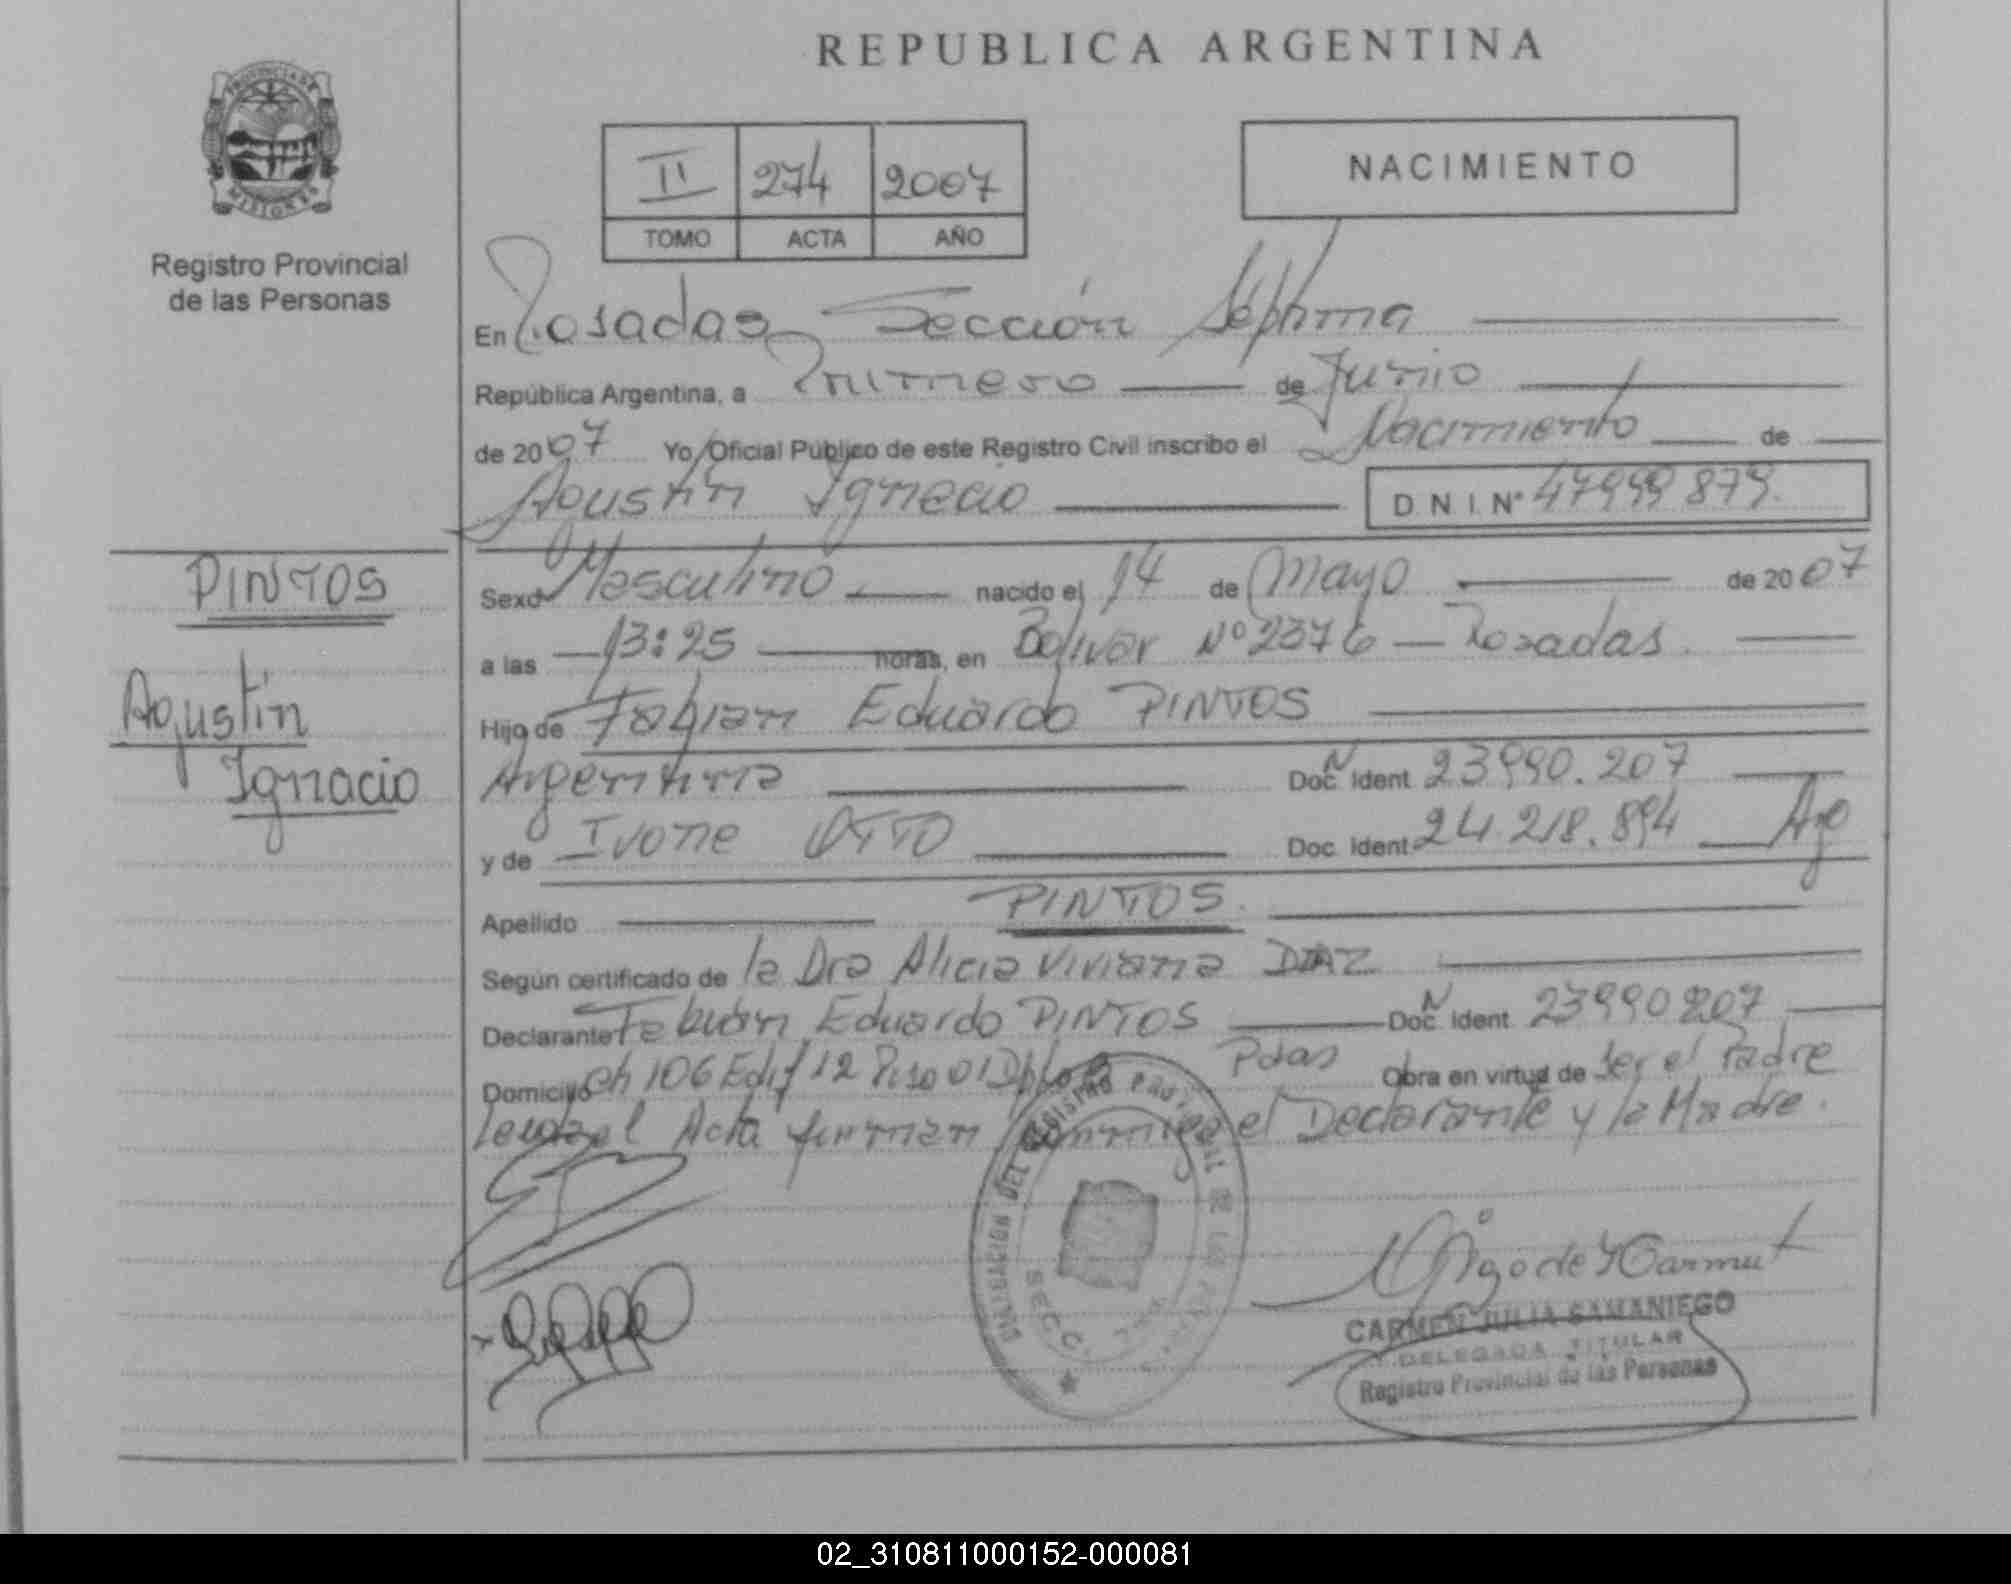 REPUBLICA ARGENTINA
PROVINCIA DE
MISIONES
Registro Provincial
de las Personas
II 274 2007
TOMO ACTA AÑO
NACIMIENTO
En Posadas Sección Séptima
República Argentina, a Primero de Junio
de 2007 Yo, Oficial Público de este Registro Civil inscribo el Nacimiento de
Agustín Ignacio D.N.I. Nº 47999879.
PINTOS
Agustín
Ignacio
Sexo Masculino nacido el 14 de Mayo de 2007
a las 13:25 horas, en Bolivar Nº 2376 — Posadas.
Hijo de Fabian Eduardo PINTOS
Argentina Doc. N Ident 23990.207
y de Ivone OTTO Doc. Ident 24.218.894 Arg
Apellido PINTOS.
Según certificado de la Dra Alicia Viviana DIAZ
Declarante Fabián Eduardo PINTOS Doc. N Ident 23990207
Domicilio ch 106 Edif 12 Piso 01 Dpto Pdas Obra en virtud de Ser el Padre
Leida el Acta firman conmigo el Declarante y la Madre.
DELEGACION DEL REGISTRO PROVINCIAL DE LAS
SECC.
CARMEN JULIA SAMANIEGO
DELEGADA TITULAR
Registro Provincial de las Personas
02_310811000152-000081